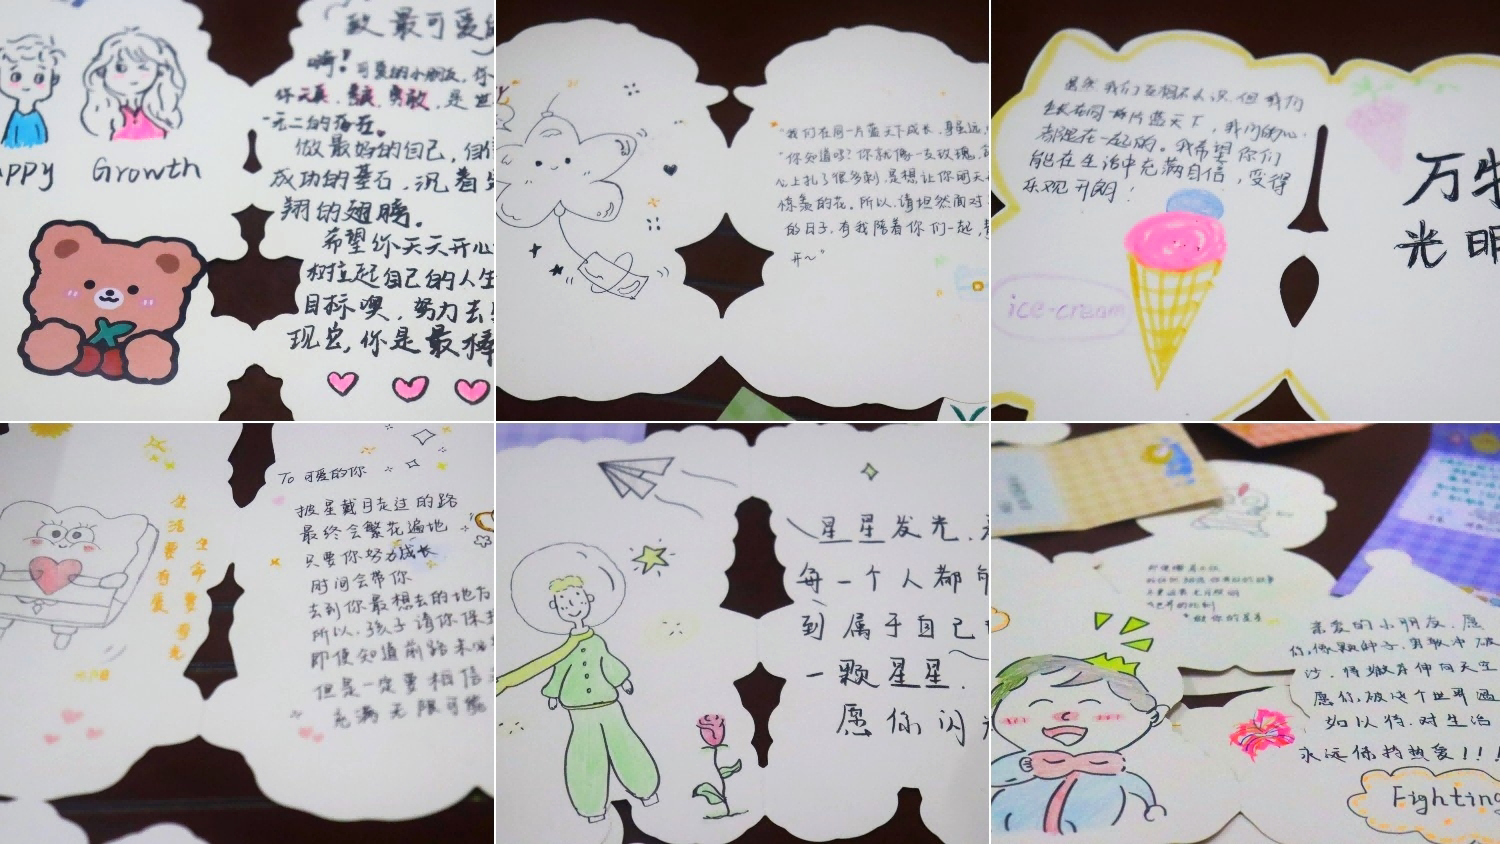 致最可爱的
啊!可爱的小朋友,你
你天真、善良、勇敢,是世
一无二的存在。
做最好的自己,自信
成功的基石,沉着是
翔的翅膀。
希望你天天开心
树立起自己的人生
目标噢,努力去
现它,你是最棒
ppy
Growth
"我们在同一片蓝天下成长,
"你知道吗?你就像一支玫瑰,
心上扎了很多刺,是想让你明天
惊羡的花。所以,请坦然面对
的日子,有我陪着你们一起,
开~"
虽然我们互相不认识,但我们
生长在同一片蓝天下,我们的心
都是在一起的。我希望你们
能在生活中充满自信,变得
乐观开朗!
ice-cream
万
光明
生活要有爱
生命要有光
To 可爱的你
披星戴月走过的路
最终会繁花遍地
只要你努力成长
时间会带你
去到你最想去的地方
所以,孩子请你保持
即使知道前路未
但是一定要相信
充满无限可能
星星发光,
每一个人都能
到属于自己
一颗星星.
愿你闪
亲爱的小朋友,愿
你像颗种子,勇敢冲破
沙,将嫩芽伸向天空
愿你,被这个世界温
如以待,对生活
永远保持热爱!!!
Fighting